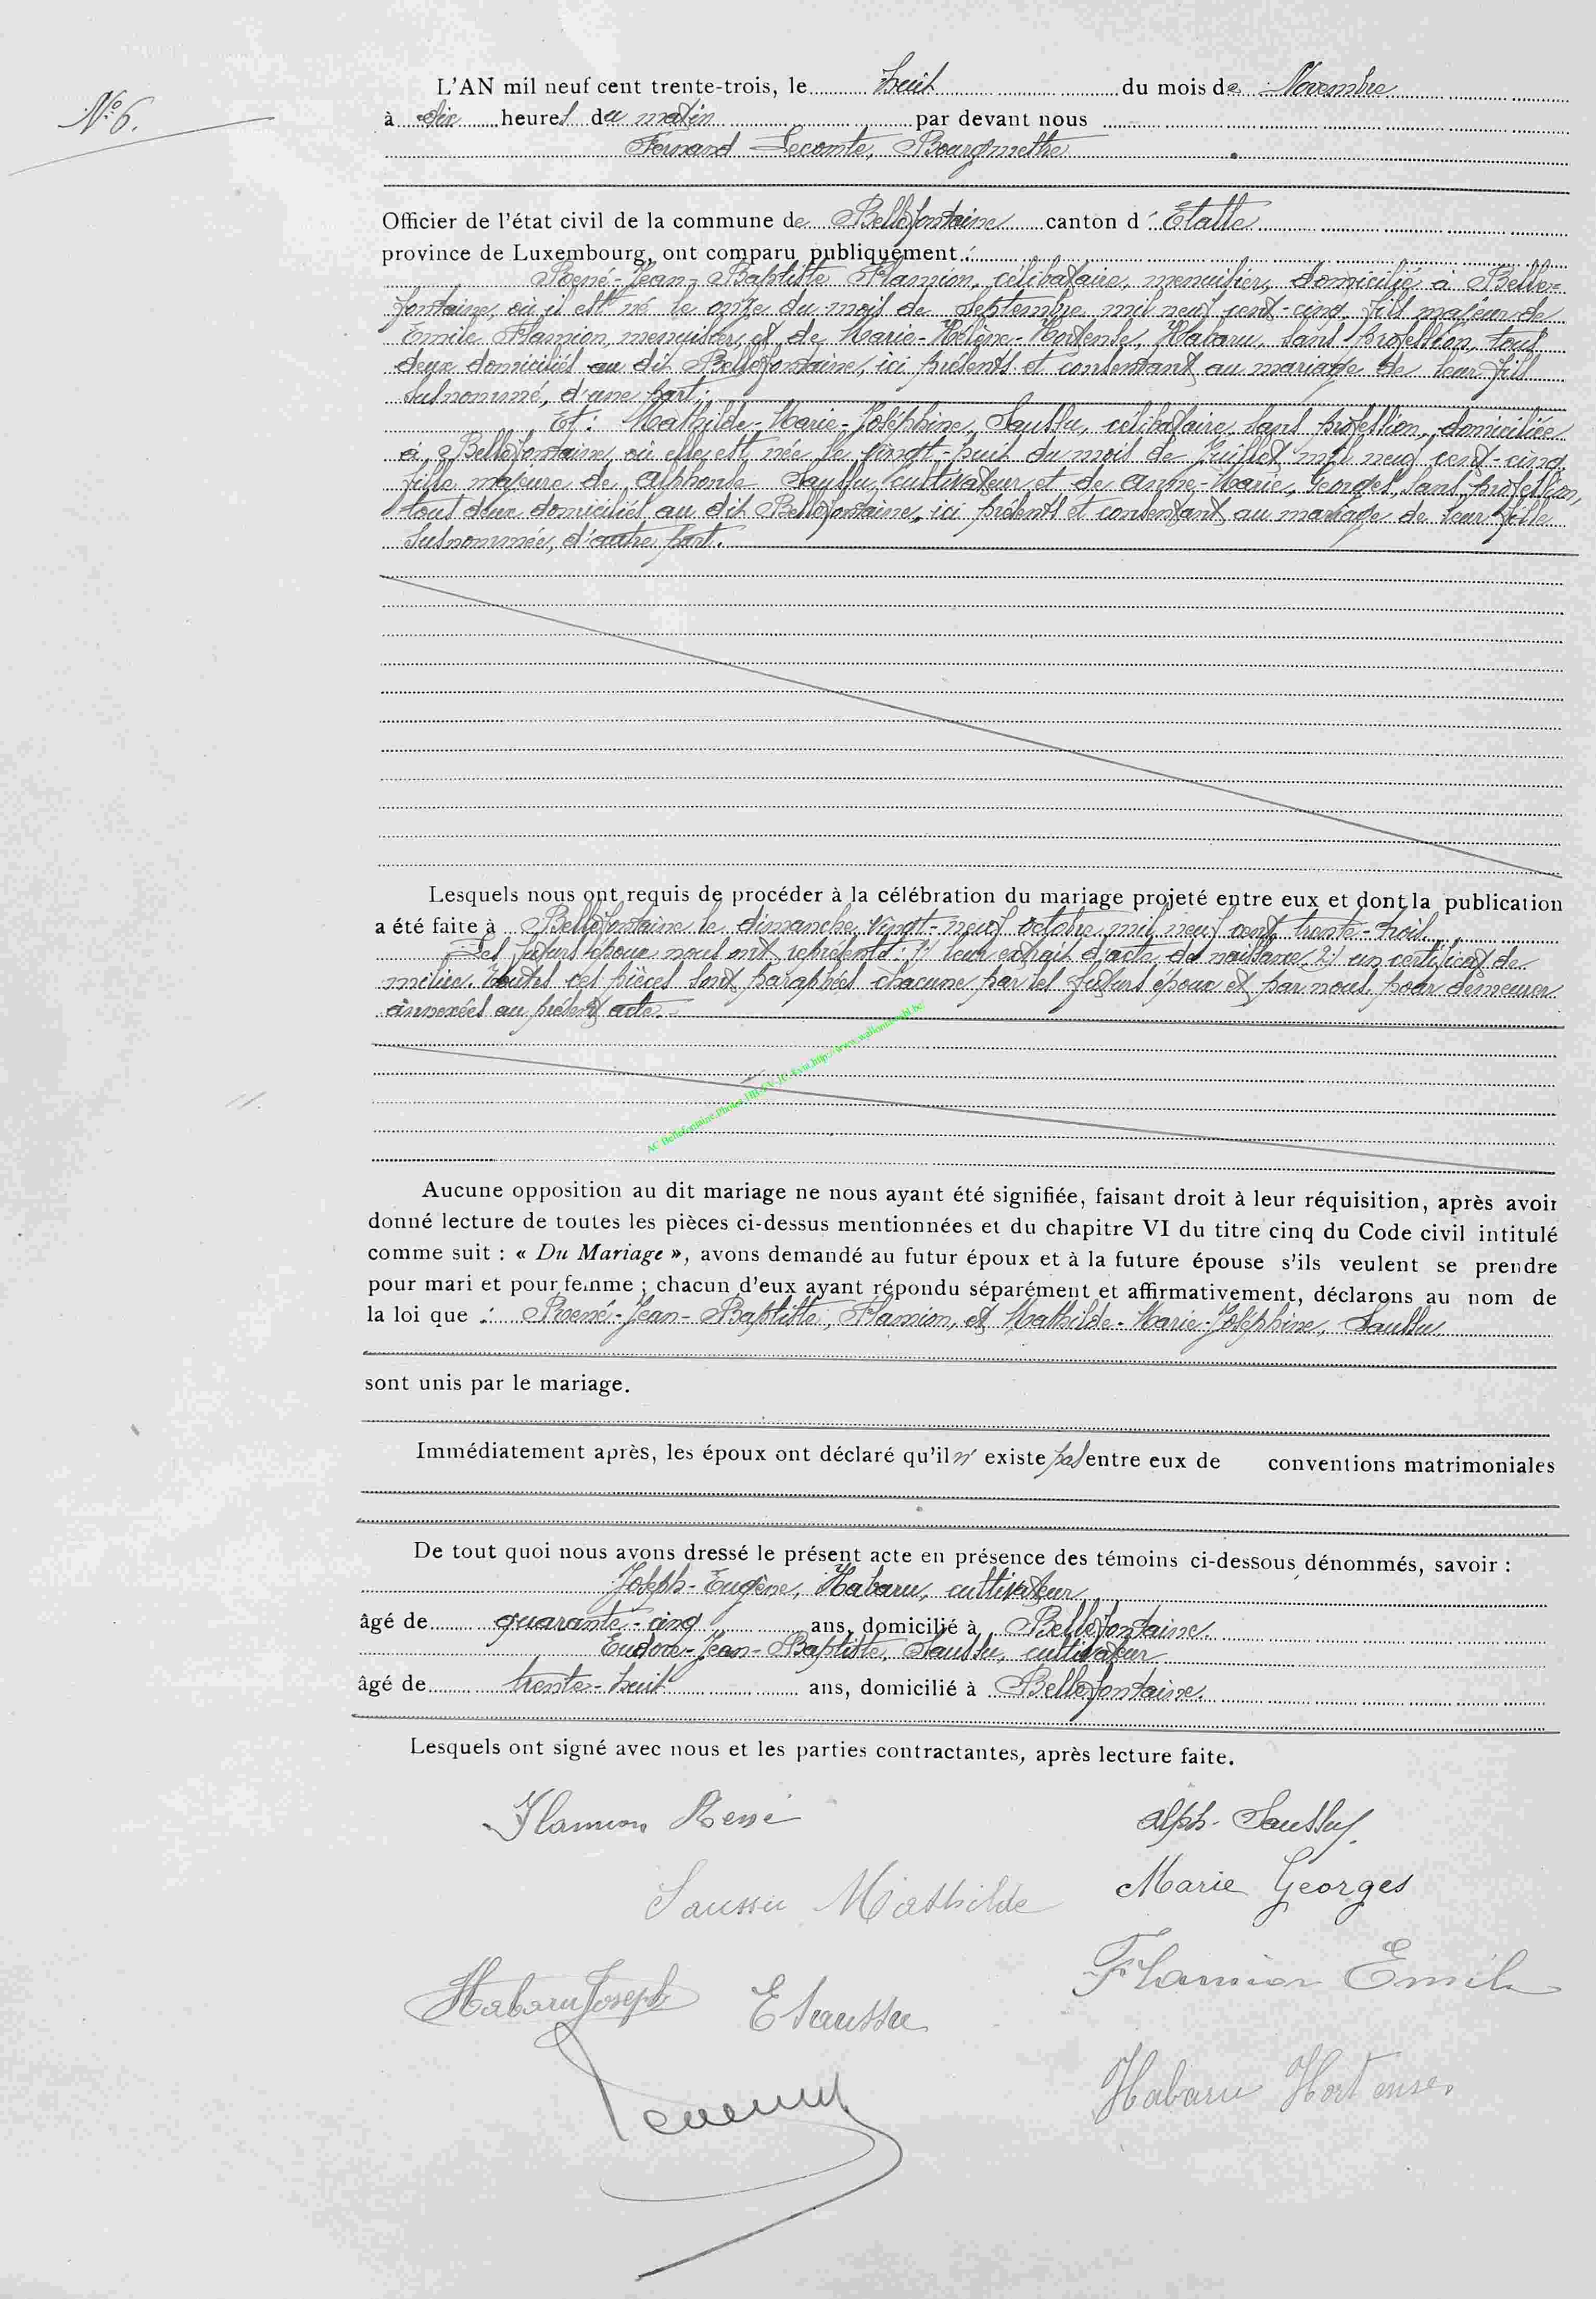 N° 6.
L'AN mil neuf cent trente-trois, le huit du mois de Novembre
à dix heures du matin par devant nous
Fernand Lecomte, Bourgmestre
Officier de l'état civil de la commune de Bellefontaine canton d'Etalle
province de Luxembourg, ont comparu publiquement :
René-Jean-Baptiste Flamion, célibataire, menuisier, domicilié à Belle=
fontaine, où il est né le onze du mois de Septembre mil neuf cent-cinq, fils majeur de
Emile Flamion, menuisier, et de Marie-Hélène-Hortense, Habaru, sans profession, tous
deux domiciliés au dit Bellefontaine, ici présents et consentant au mariage de leur fils
susnommé, d'une part;
Et : Mathilde-Marie-Joséphine, Saussu, célibataire, sans profession, domiciliée
à Bellefontaine, où elle est née le vingt-huit du mois de Juillet mil neuf cent-cinq,
fille majeure de Alphonse Saussu, cultivateur et de Anne-Marie, Georges, sans profession,
tous deux domiciliés au dit Bellefontaine, ici présents et consentant au mariage de leur fille
susnommée, d'autre part.
Lesquels nous ont requis de procéder à la célébration du mariage projeté entre eux et dont la publication
a été faite à Bellefontaine le dimanche vingt-neuf octobre mil neuf cent trente-trois.
Les futurs époux nous ont représenté : 1/ leur extrait d'acte de naissance. 2/ un certificat de
milice. Toutes ces pièces sont paraphées chacune par les futurs époux et par nous pour demeurer
annexées au présent acte.
AC Bellefontaine, Photos HB-EV-JC-Exta http://www.wallonica.gohl.be/
Aucune opposition au dit mariage ne nous ayant été signifiée, faisant droit à leur réquisition, après avoir
donné lecture de toutes les pièces ci-dessus mentionnées et du chapitre VI du titre cinq du Code civil intitulé
comme suit : « Du Mariage », avons demandé au futur époux et à la future épouse s'ils veulent se prendre
pour mari et pour femme ; chacun d'eux ayant répondu séparément et affirmativement, déclarons au nom de
la loi que : René-Jean-Baptiste, Flamion, et Mathilde-Marie-Joséphine, Saussu
sont unis par le mariage.
Immédiatement après, les époux ont déclaré qu'il n'existe pas entre eux de conventions matrimoniales
De tout quoi nous avons dressé le présent acte en présence des témoins ci-dessous dénommés, savoir :
Joseph-Eugène, Habaru, cultivateur
âgé de quarante-cinq ans, domicilié à Bellefontaine.
Eudore-Jean-Baptiste, Saussu, cultivateur
âgé de trente-huit ans, domicilié à Bellefontaine.
Lesquels ont signé avec nous et les parties contractantes, après lecture faite.
Flamion René
Alph. Saussu
Saussu Mathilde
Marie Georges
Flamion Emile
Habaru Joseph
E Saussu
Habaru Hortense